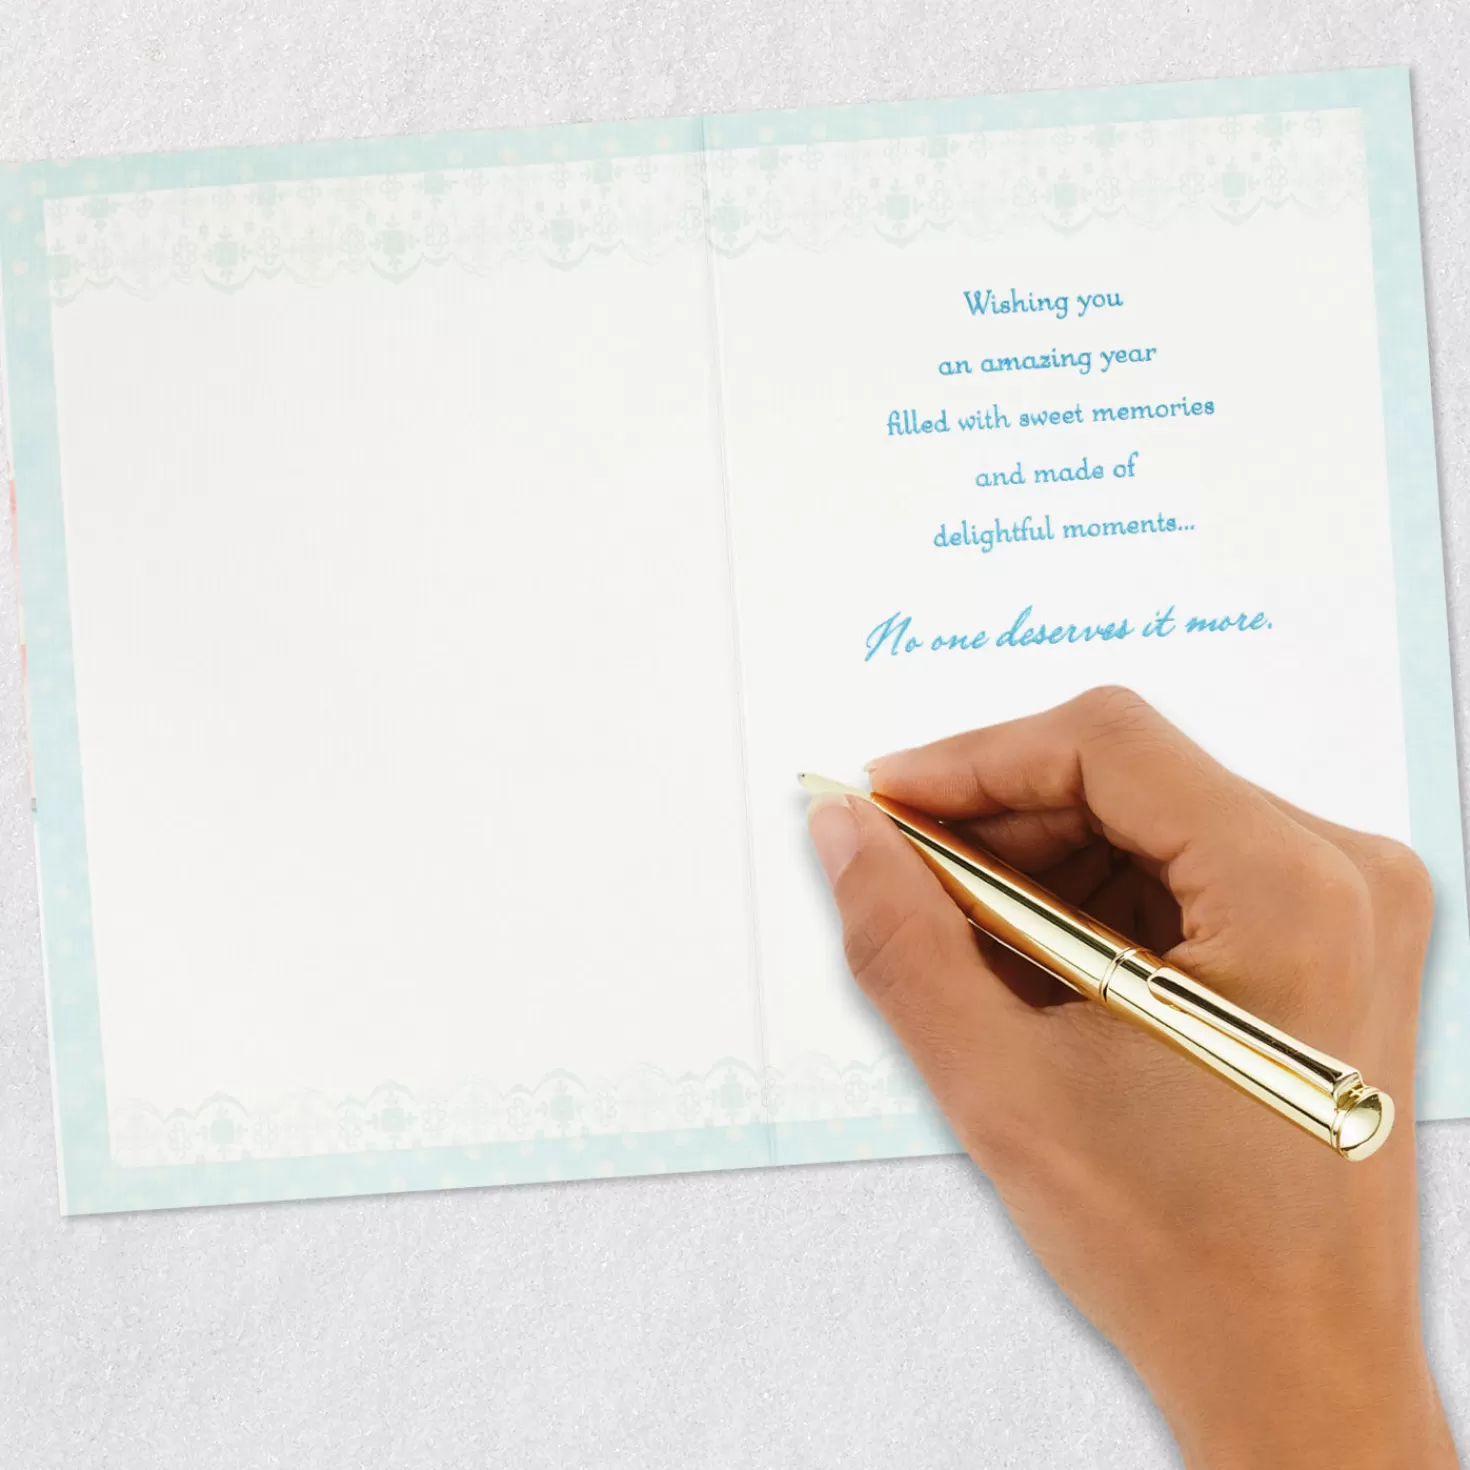 Wishing you
an amazing year
filled with sweet memories
and made of
delightful moments...
No one deserves it more.